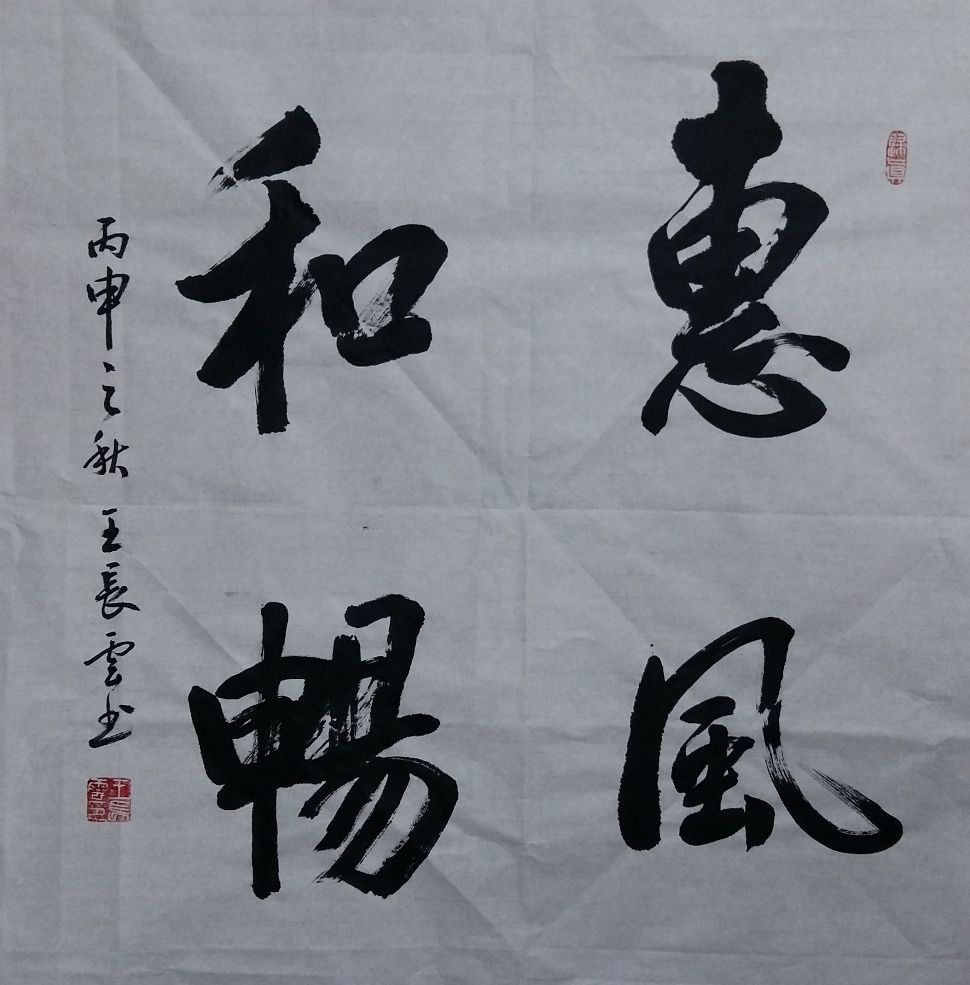 惠風
和暢
丙申之秋 王長雲书